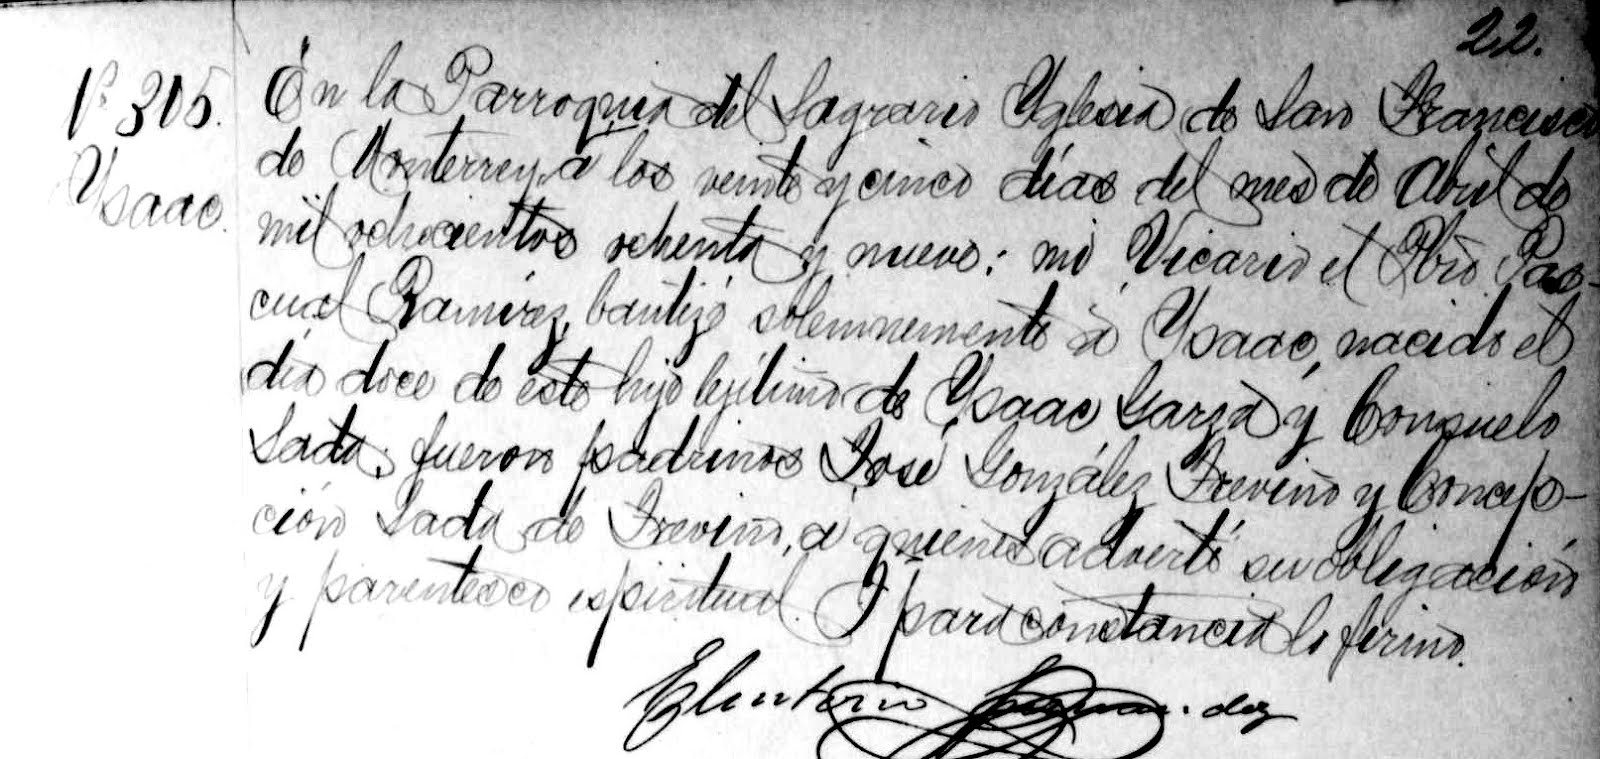 22.
N° 305.
Ysaac.
En la Parroquia del Sagrario Yglesia de San Francisco
de Monterrey, á los veinte y cinco días del mes de Abril de
mil ochocientos ochenta y nueve: mi Vicario el Pbro. Pas-
cual Ramírez, bautizó solemnemente á Ysaac, nacido el
día doce de este hijo legítimo de Ysaac Garza y Consuelo
Sada; fueron padrinos José González Treviño y Concep-
ción Sada de Treviño, á quienes advertí su obligación
y parentesco espiritual. Y para constancia lo firmo.
Eleuterio